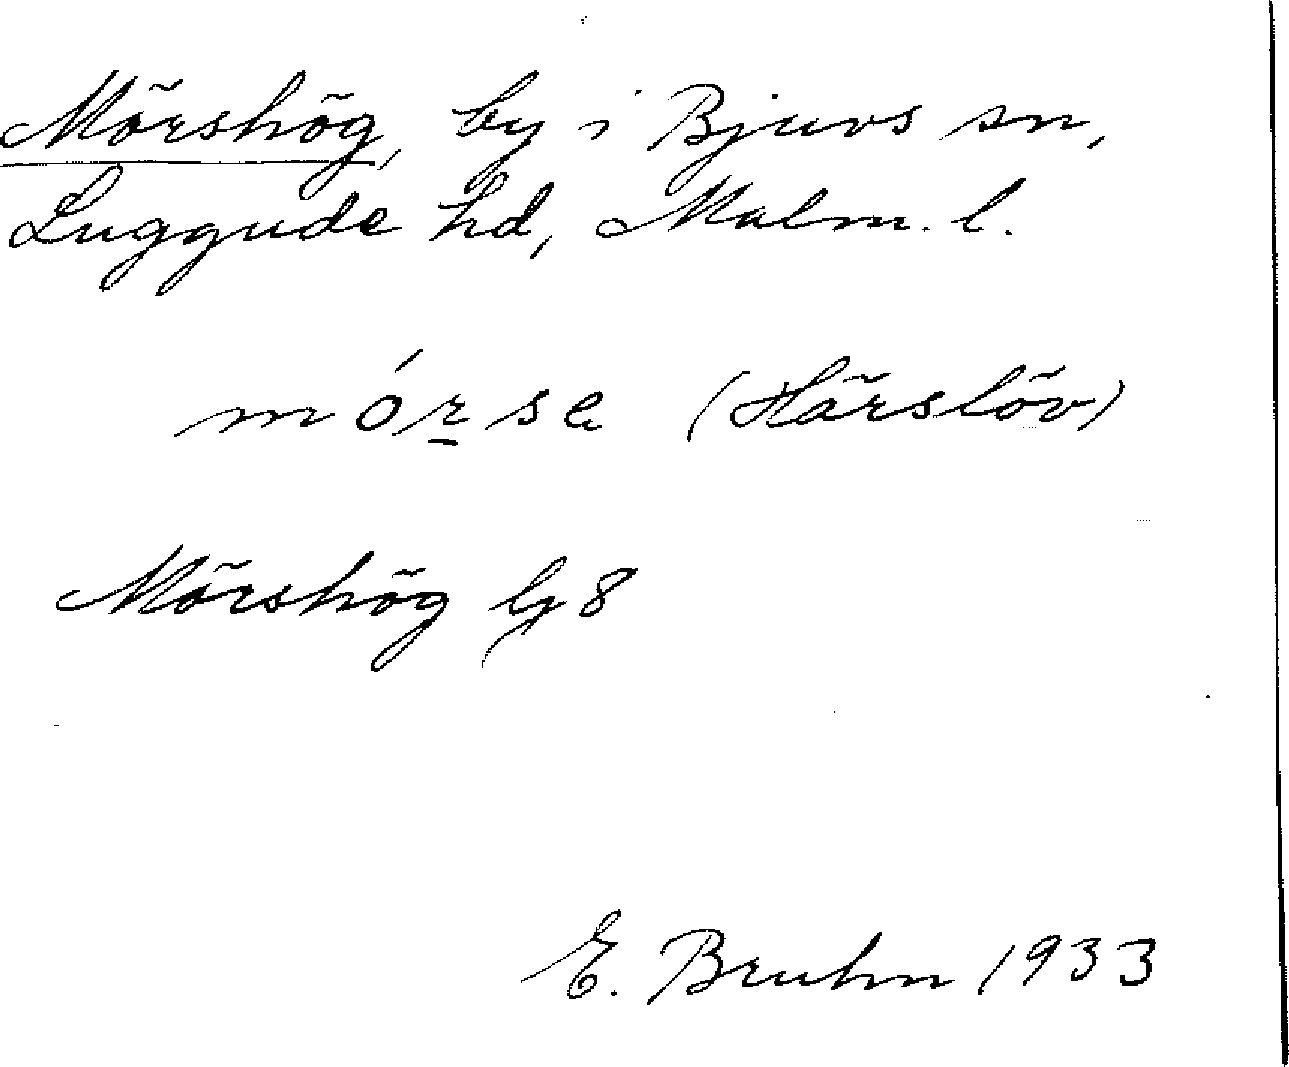 Mörshög, by i Bjuvs sn,
Luggude hd, Malm. l.
mórsa (Härslöv)
Mörshög by 8
E. Bruhn 1933